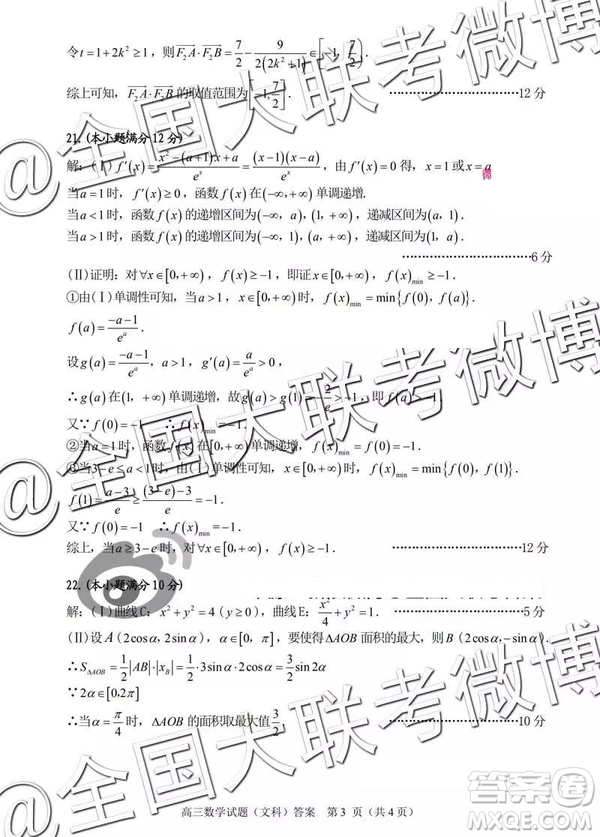 令t=1+2k²≥1，则F₂A·F₂B=7/2-9/(2(2k²+1))∈[-1,7/2)．
综上可知，F₂A·F₂B的取值范围为[-1,7/2]．………………12分
21.（本小题满分12分）
解：（Ⅰ）f′(x)=(x²-(a+1)x+a)/eˣ=(x-1)(x-a)/eˣ，由f′(x)=0得，x=1或x=a
当a=1时，f′(x)≥0，函数f(x)在(-∞,+∞)单调递增.
当a<1时，函数f(x)的递增区间为(-∞，a)，(1，+∞)，递减区间为(a，1)．
当a>1时，函数f(x)的递增区间为(-∞，1)，(a，+∞)，递减区间为(1，a)．
………………6分
（Ⅱ）证明：对∀x∈[0,+∞)，f(x)≥-1，即证f(x)min≥-1．
①由（Ⅰ）单调性可知，当a>1，x∈[0,+∞)时，f(x)min=min{f(0),f(a)}．
f(a)=(-a-1)/eᵃ．
设g(a)=(-a-1)/eᵃ，a>1，g′(a)=a/eᵃ>0，
∴g(a)在(1，+∞)单调递增，故g(a)>g(1)=-2/e>-1，即f(a)>-1．
又∵f(0)=-1 ∴f(x)min=-1．
②当a=1时，函数f(x)在[0,+∞)单调递增，f(x)min=f(0)=-1．
③当3-e≤a<1时，由（Ⅰ）单调性可知，x∈[0,+∞)时，f(x)min=min{f(0),f(1)}．
f(1)=(a-3)/e≥((3-e)-3)/e=-1．
又∵f(0)=-1 ∴f(x)min=-1．
综上，当a≥3-e时，对∀x∈[0,+∞)，f(x)≥-1．………………12分
22.（本小题满分10分）
解：（Ⅰ）曲线C：x²+y²=4(y≥0)，曲线E：x²/4+y²=1．………………5分
（Ⅱ）设A(2cosα,2sinα)，α∈[0，π]，要使得ΔAOB面积的最大，则B(2cosα,-sinα)．
∴S△AOB=1/2|AB|·|x_B|=1/2·3sinα·2cosα=3/2sin2α
∵2α∈[0,2π]
∴当α=π/4时，ΔAOB的面积取最大值3/2．………………10分
高三数学试题（文科）答案 第3页（共4页）
@全国大联考微博
@全国大联考微博
@全国大联考微博
答案圈